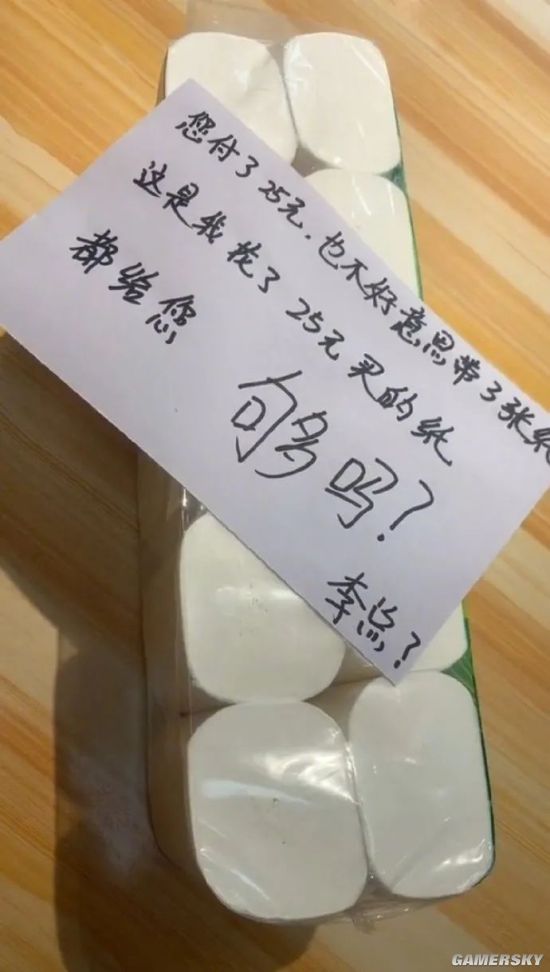 您付了25元,也不好意思带了张纸
这是我找了25元买的纸
都给您
够吗?
李总?
GAMERSKY